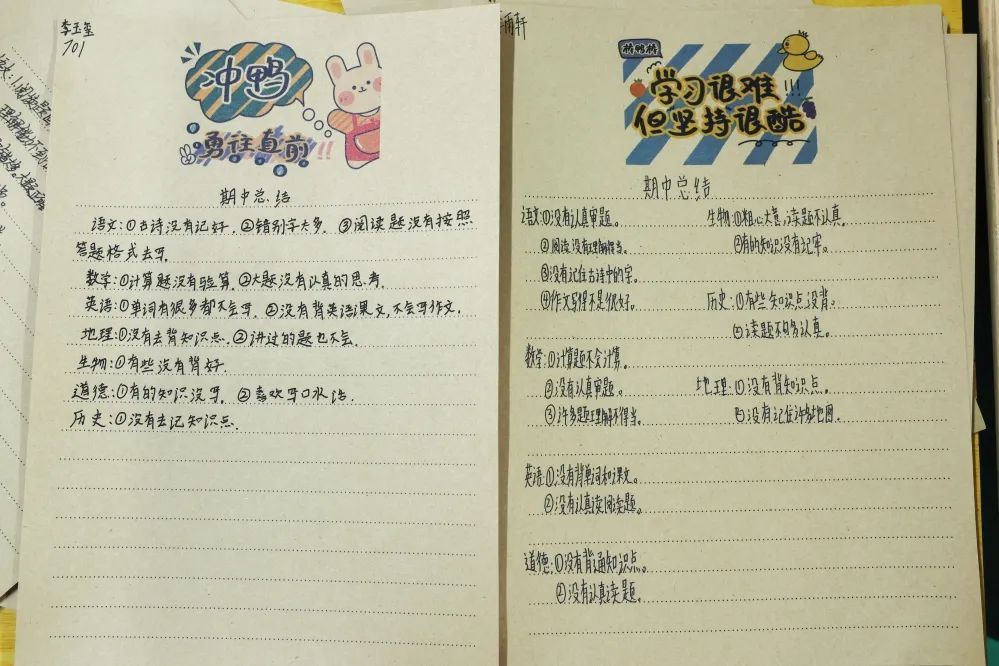 李玉玺
701
冲鸭
勇往直前!!
期中总结
语文:①古诗没有记好.②错别字太多.③阅读题没有按照
答题格式去写.
数学:①计算题没有验算.②大题没有认真的思考.
英语:①单词有很多都不会写.②没有背英语课文,不会写作文.
地理:①没有去背知识点.②讲过的题也不会.
生物:①有些没有背好.
道德:①有的知识没写.②喜欢写口水话.
历史:①没有去记知识点.
雨轩
学习很难!!!
但坚持很酷
期中总结
语文:①没有认真审题。
②阅读没有理解得当。
③没有记住古诗中的字。
④作文写得不是很好。
数学:①计算题不会计算。
②没有认真审题。
③许多题理解不得当。
英语:①没有背单词和课文。
②没有认真读阅读题。
道德:①没有背诵知识点。
②没有认真读题。
生物:①粗心大意,读题不认真
②有的知识没有记牢。
历史:①有些知识点没背。
②读题不够多认真。
地理:①没有背知识点。
②没有记住许多地图.